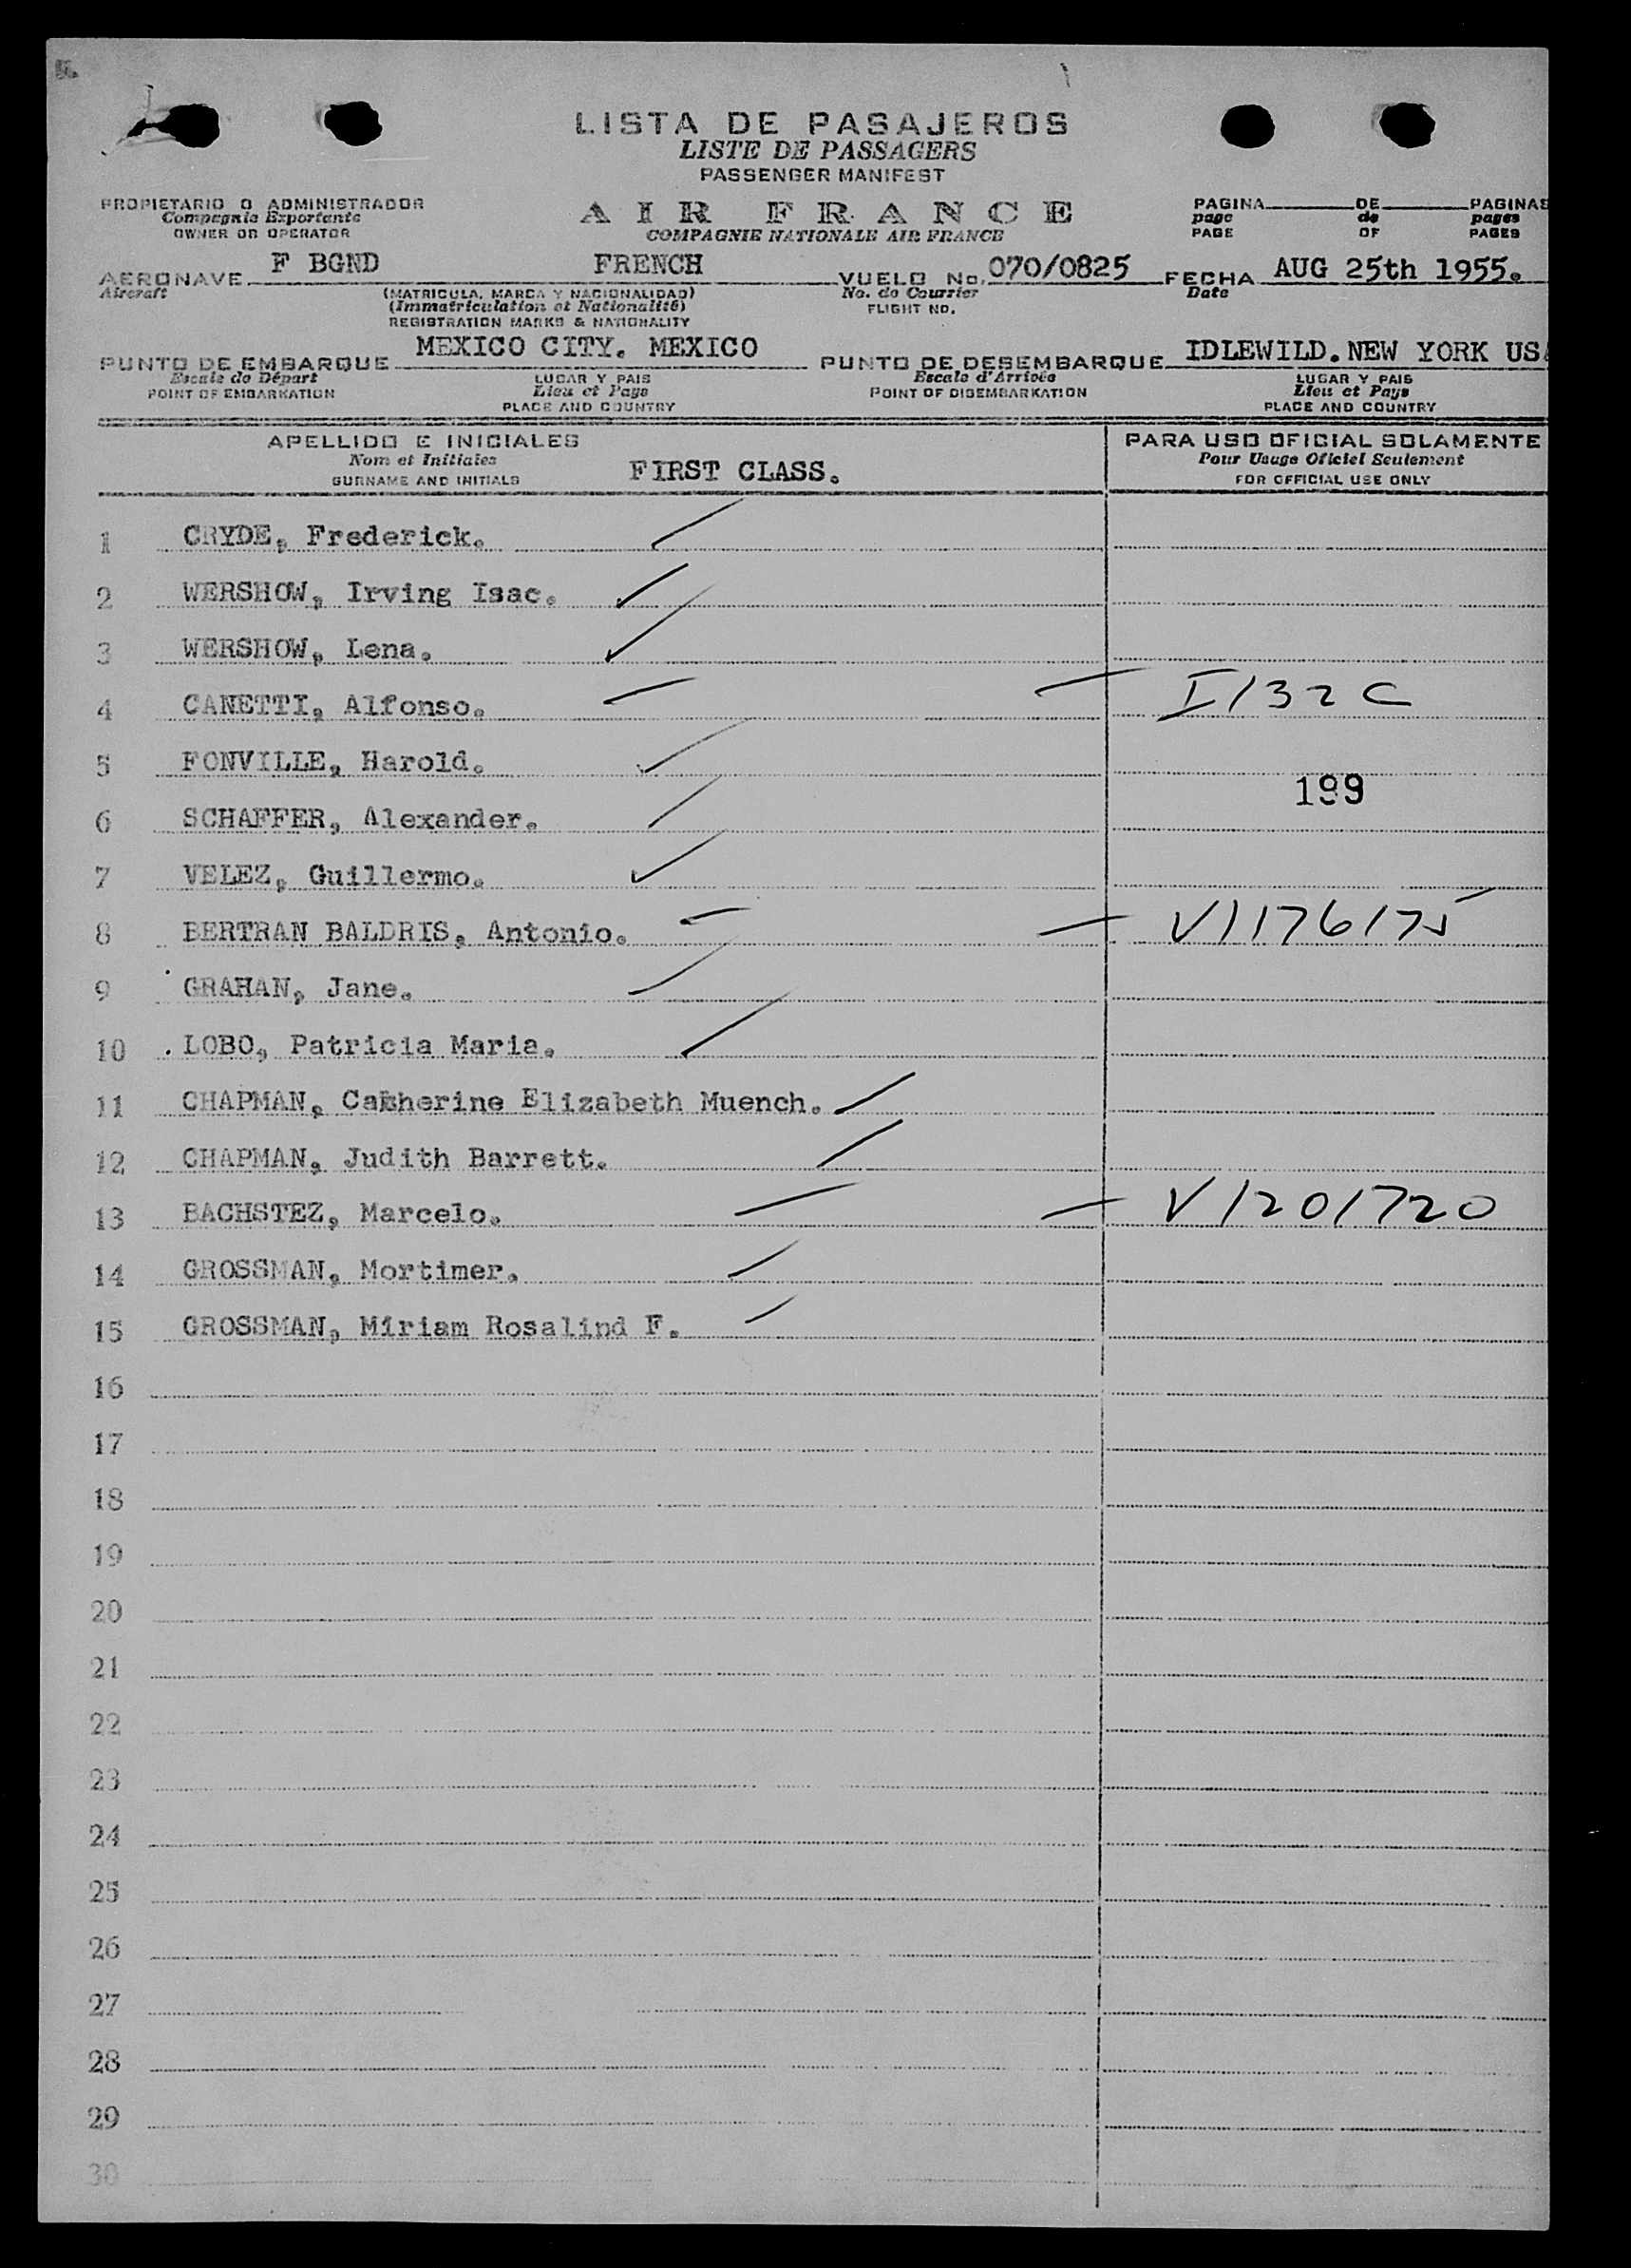 LISTA DE PASAJEROS
LISTE DE PASSAGERS
PASSENGER MANIFEST
PROPIETARIO O ADMINISTRADOR
Compagnie Exportante
OWNER OR OPERATOR
AIR FRANCE
COMPAGNIE NATIONALE AIR FRANCE
PAGINA DE PAGINAS
page de pages
PAGE OF PAGES
AERONAVE F BGND FRENCH VUELO No. 070/0825 FECHA AUG 25th 1955.
Aircraft (MATRICULA, MARCA Y NACIONALIDAD) No. de Courrier Date
(Immatriculation et Nationalité) FLIGHT NO.
REGISTRATION MARKS & NATIONALITY
PUNTO DE EMBARQUE MEXICO CITY. MEXICO PUNTO DE DESEMBARQUE IDLEWILD.NEW YORK US
Escale de Départ LUGAR Y PAIS Escale d'Arrivée LUGAR Y PAIS
POINT OF EMBARKATION Lieu et Pays POINT OF DISEMBARKATION Lieu et Pays
PLACE AND COUNTRY PLACE AND COUNTRY
APELLIDO E INICIALES PARA USO OFICIAL SOLAMENTE
Nom et Initiales FIRST CLASS. Pour Usage Officiel Seulement
SURNAME AND INITIALS FOR OFFICIAL USE ONLY
1 CRYDE, Frederick.
2 WERSHOW, Irving Isac.
3 WERSHOW, Lena.
4 CANETTI, Alfonso. I132C
5 FONVILLE, Harold.
199
6 SCHAFFER, Alexander.
7 VELEZ, Guillermo.
8 BERTRAN BALDRIS, Antonio. V1176175
9 GRAHAN, Jane.
10 LOBO, Patricia Maria.
11 CHAPMAN, Catherine Elizabeth Muench.
12 CHAPMAN, Judith Barrett.
13 BACHSTEZ, Marcelo. V1201720
14 GROSSMAN, Mortimer.
15 GROSSMAN, Miriam Rosalind F.
16
17
18
19
20
21
22
23
24
25
26
27
28
29
30